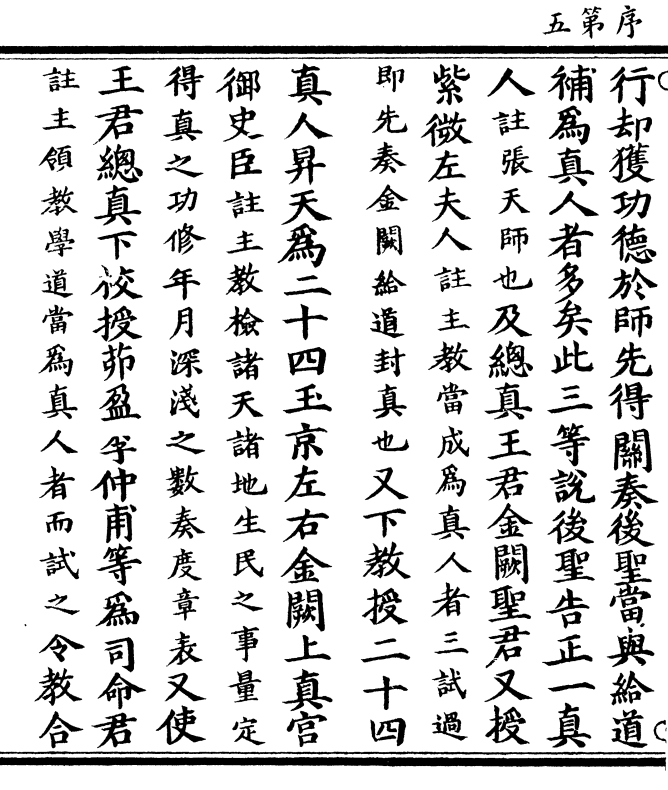 序第五
行却獲功德於師先得關奏後聖當與給道
補為真人者多矣此三等說後聖告正一真
人註張天師也及總真王君金闕聖君又授
紫微左夫人註主教當成為真人者三試過
即先奏金闕給道封真也又下教授二十四
真人昇天為二十四玉京左右金闕上真官
御史臣註主教檢諸天諸地生民之事量定
得真之功修年月深淺之數奏度章表又使
王君總真下校授茆盈季仲甫等為司命君
註主領教學道當為真人者而試之令教合